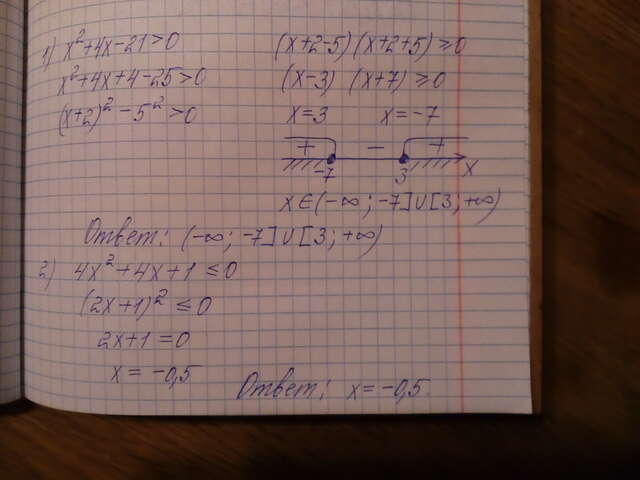 1) x²+4x-21>0
x²+4x+4-25>0
(x+2)²-5²>0
(x+2-5)(x+2+5)≥0
(x-3) (x+7)≥0
x=3 x=-7
+ - +
-7 3 x
x∈(-∞; -7]∪[3; +∞)
Ответ: (-∞; -7]∪[3; +∞)
2) 4x²+4x+1≤0
(2x+1)²≤0
2x+1=0
x=-0,5
Ответ: x=-0,5.